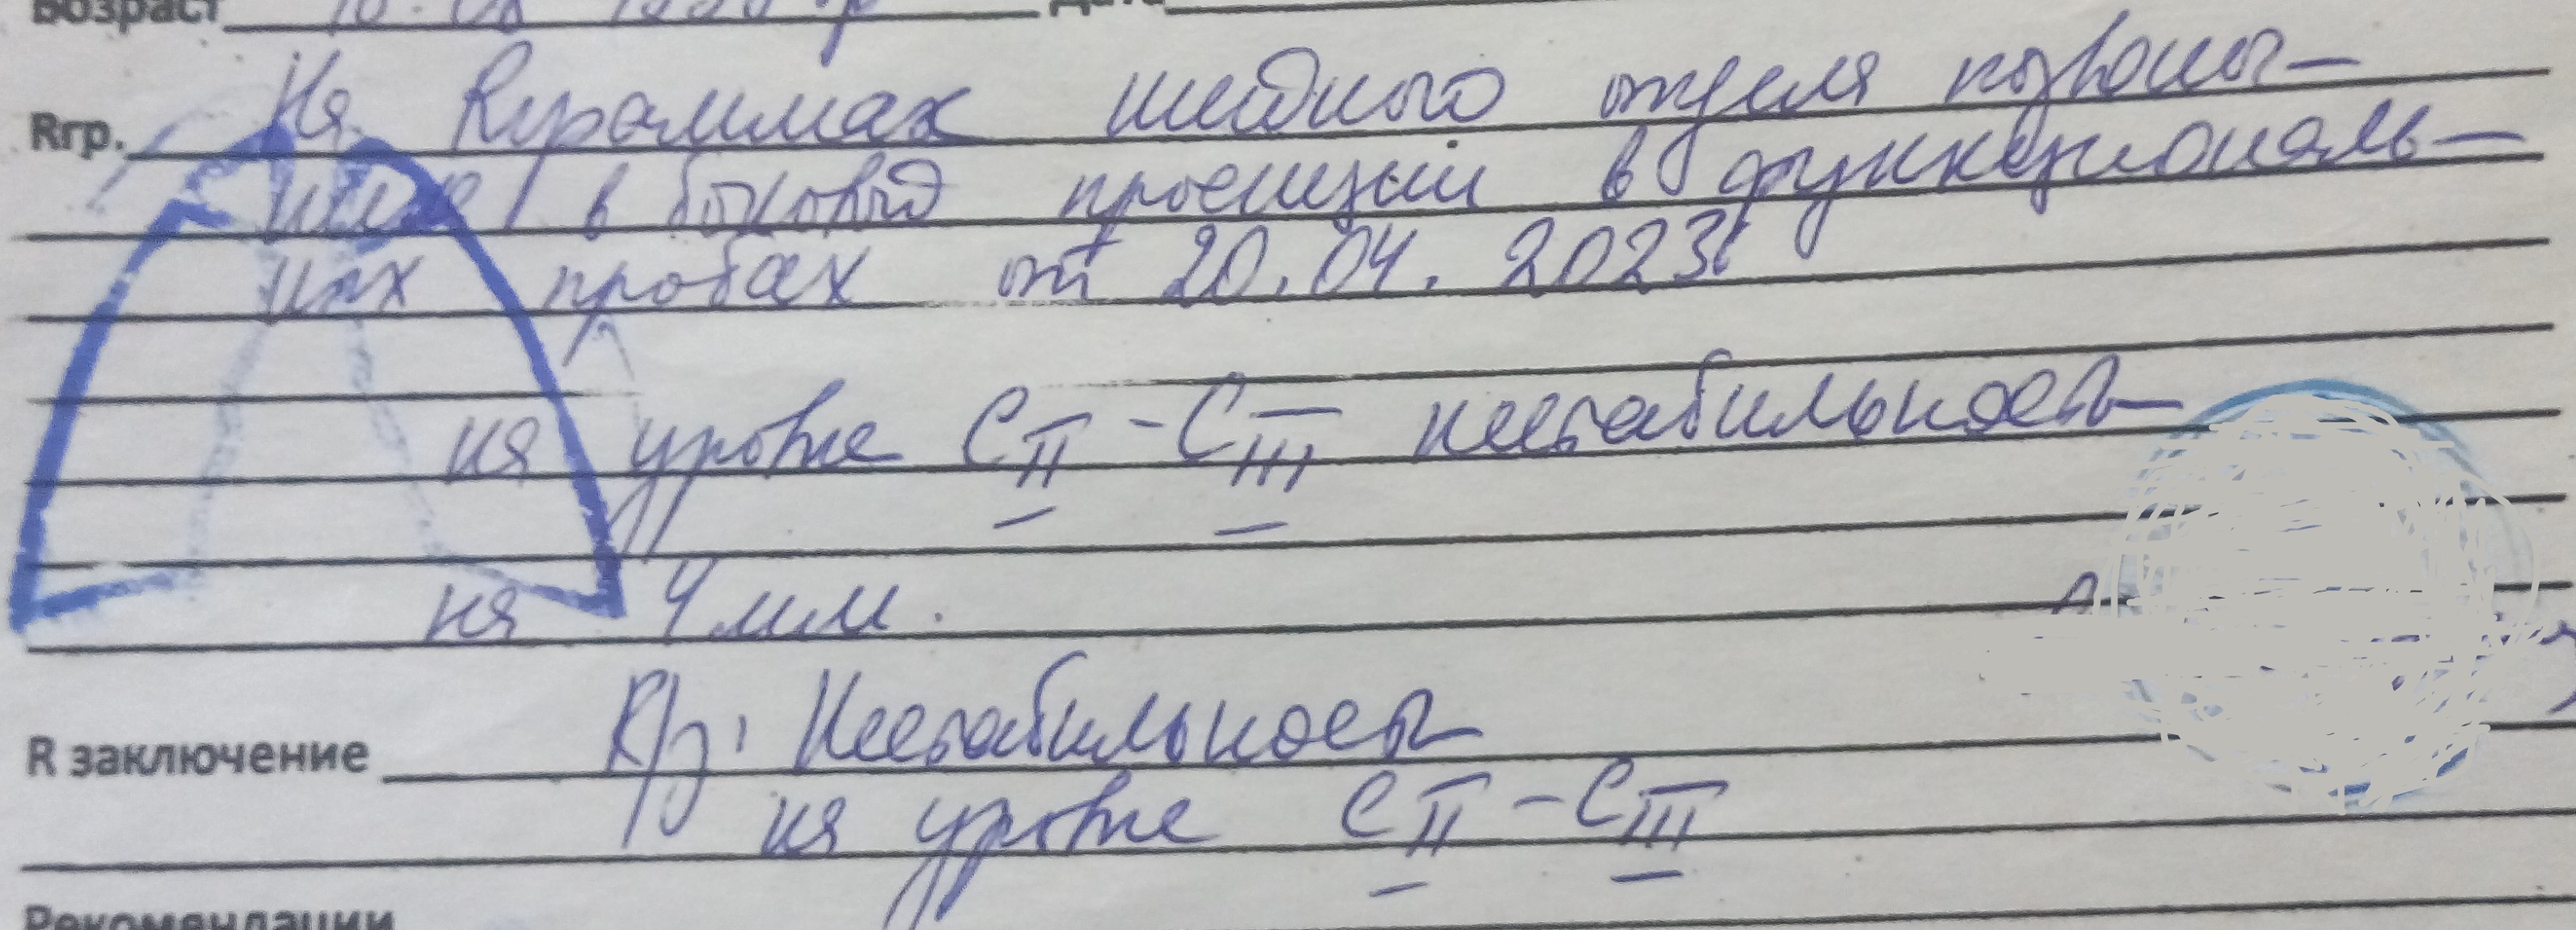 Возраст Дата
Rгр. На Rграммах шейного отдела позвоноч-
ника в боковой проекции в функциональ-
ных пробах от 20.04.2023г
на уровне CII - CIII нестабильность
на 4 мм.
R заключение R/з: Нестабильность
на уровне CII - CIII
Рекомендации